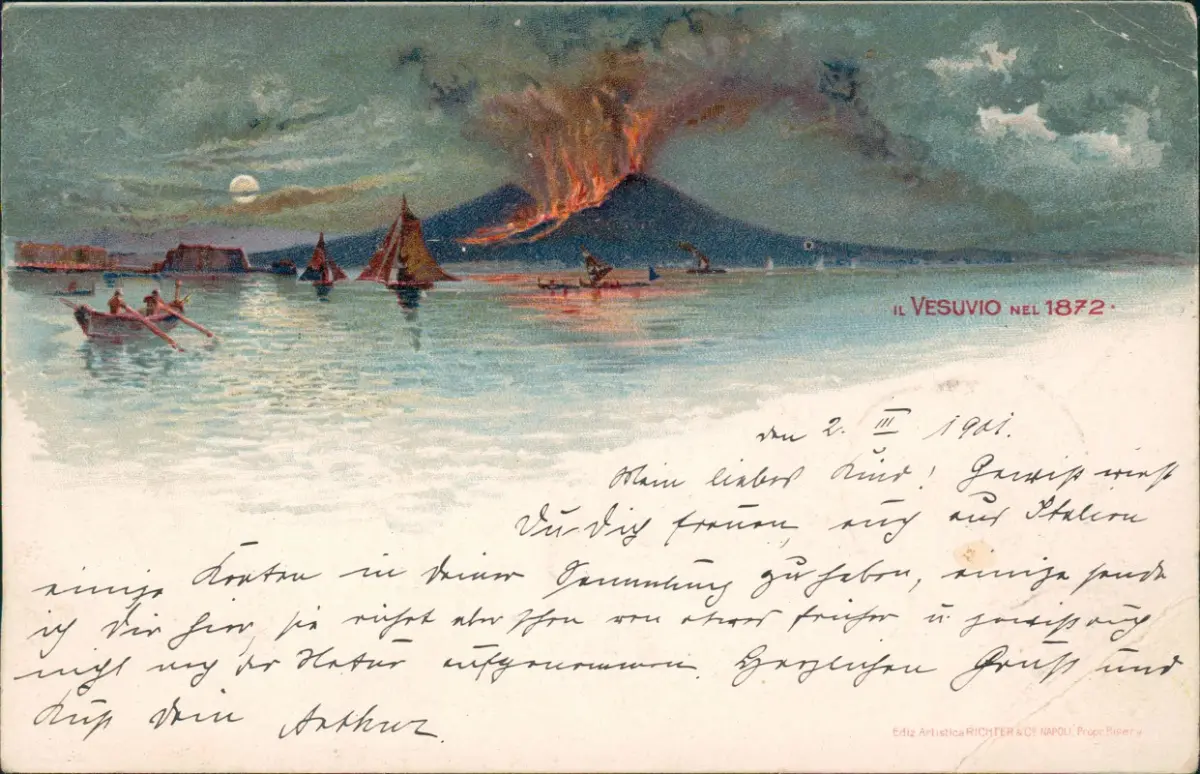 IL VESUVIO NEL 1872.
den 2. III 1901.
Mein liebes Kind! Gewiß wirst
Du Dich freuen, auch aus Italien
einige Karten in deiner Sammlung zu haben, einige sende
ich Dir hier, sie aber schon von etwas früher u. gewiß auch
nicht nach der Natur aufgenommen. Herzlichen Gruß und
Kuß dein Arthur.
Ediz. Artistica RICHTER & Co. NAPOLI, Propr. Riserv.